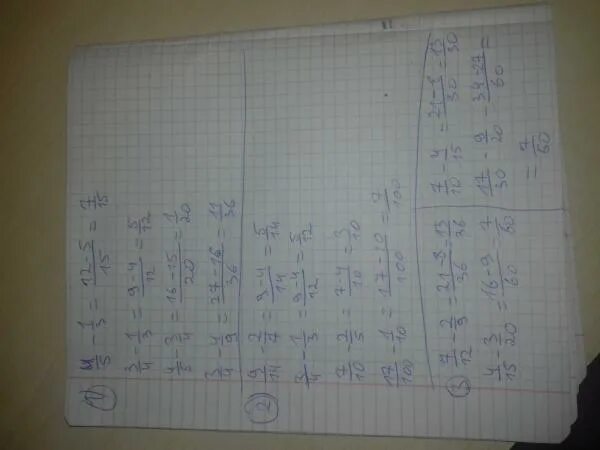 1) 4/5 - 1/3 = (12-5)/15 = 7/15
3/4 - 1/3 = (9-4)/12 = 5/12
4/5 - 3/4 = (16-15)/20 = 1/20
3/4 - 4/9 = (27-16)/36 = 11/36
2) 9/14 - 2/7 = (9-4)/14 = 5/14
3/4 - 1/3 = (9-4)/12 = 5/12
7/10 - 2/5 = (7-4)/10 = 3/10
17/100 - 1/10 = (17-10)/100 = 7/100
3) 7/12 - 2/9 = (21-8)/36 = 13/36
4/15 - 3/20 = (16-9)/60 = 7/60
7/10 - 4/15 = (21-8)/30 = 13/30
17/30 - 9/20 = (34-27)/60 =
= 7/60